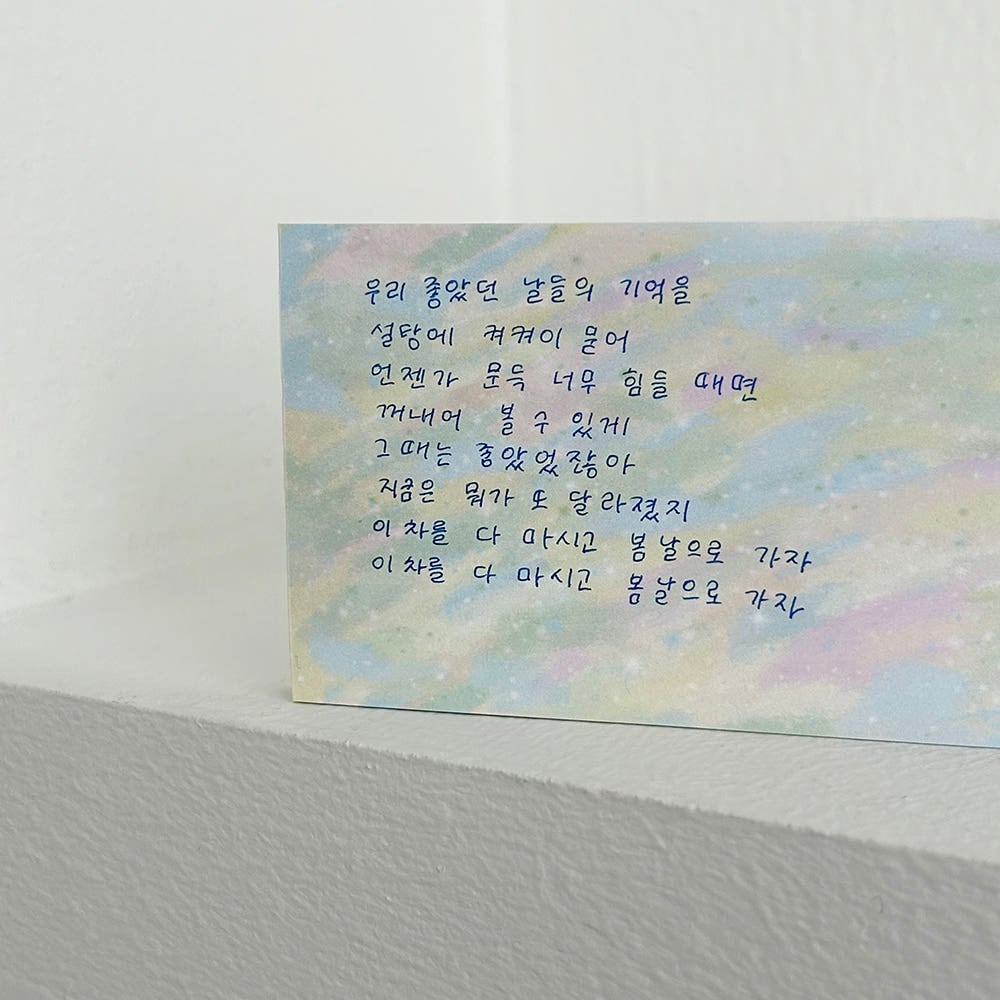 우리 좋았던 날들의 기억을
설탕에 켜켜이 묻어
언젠가 문득 너무 힘들 때면
꺼내어 볼 수 있게
그때는 좋았었잖아
지금은 뭐가 또 달라졌지
이 차를 다 마시고 봄날으로 가자
이 차를 다 마시고 봄날으로 가자